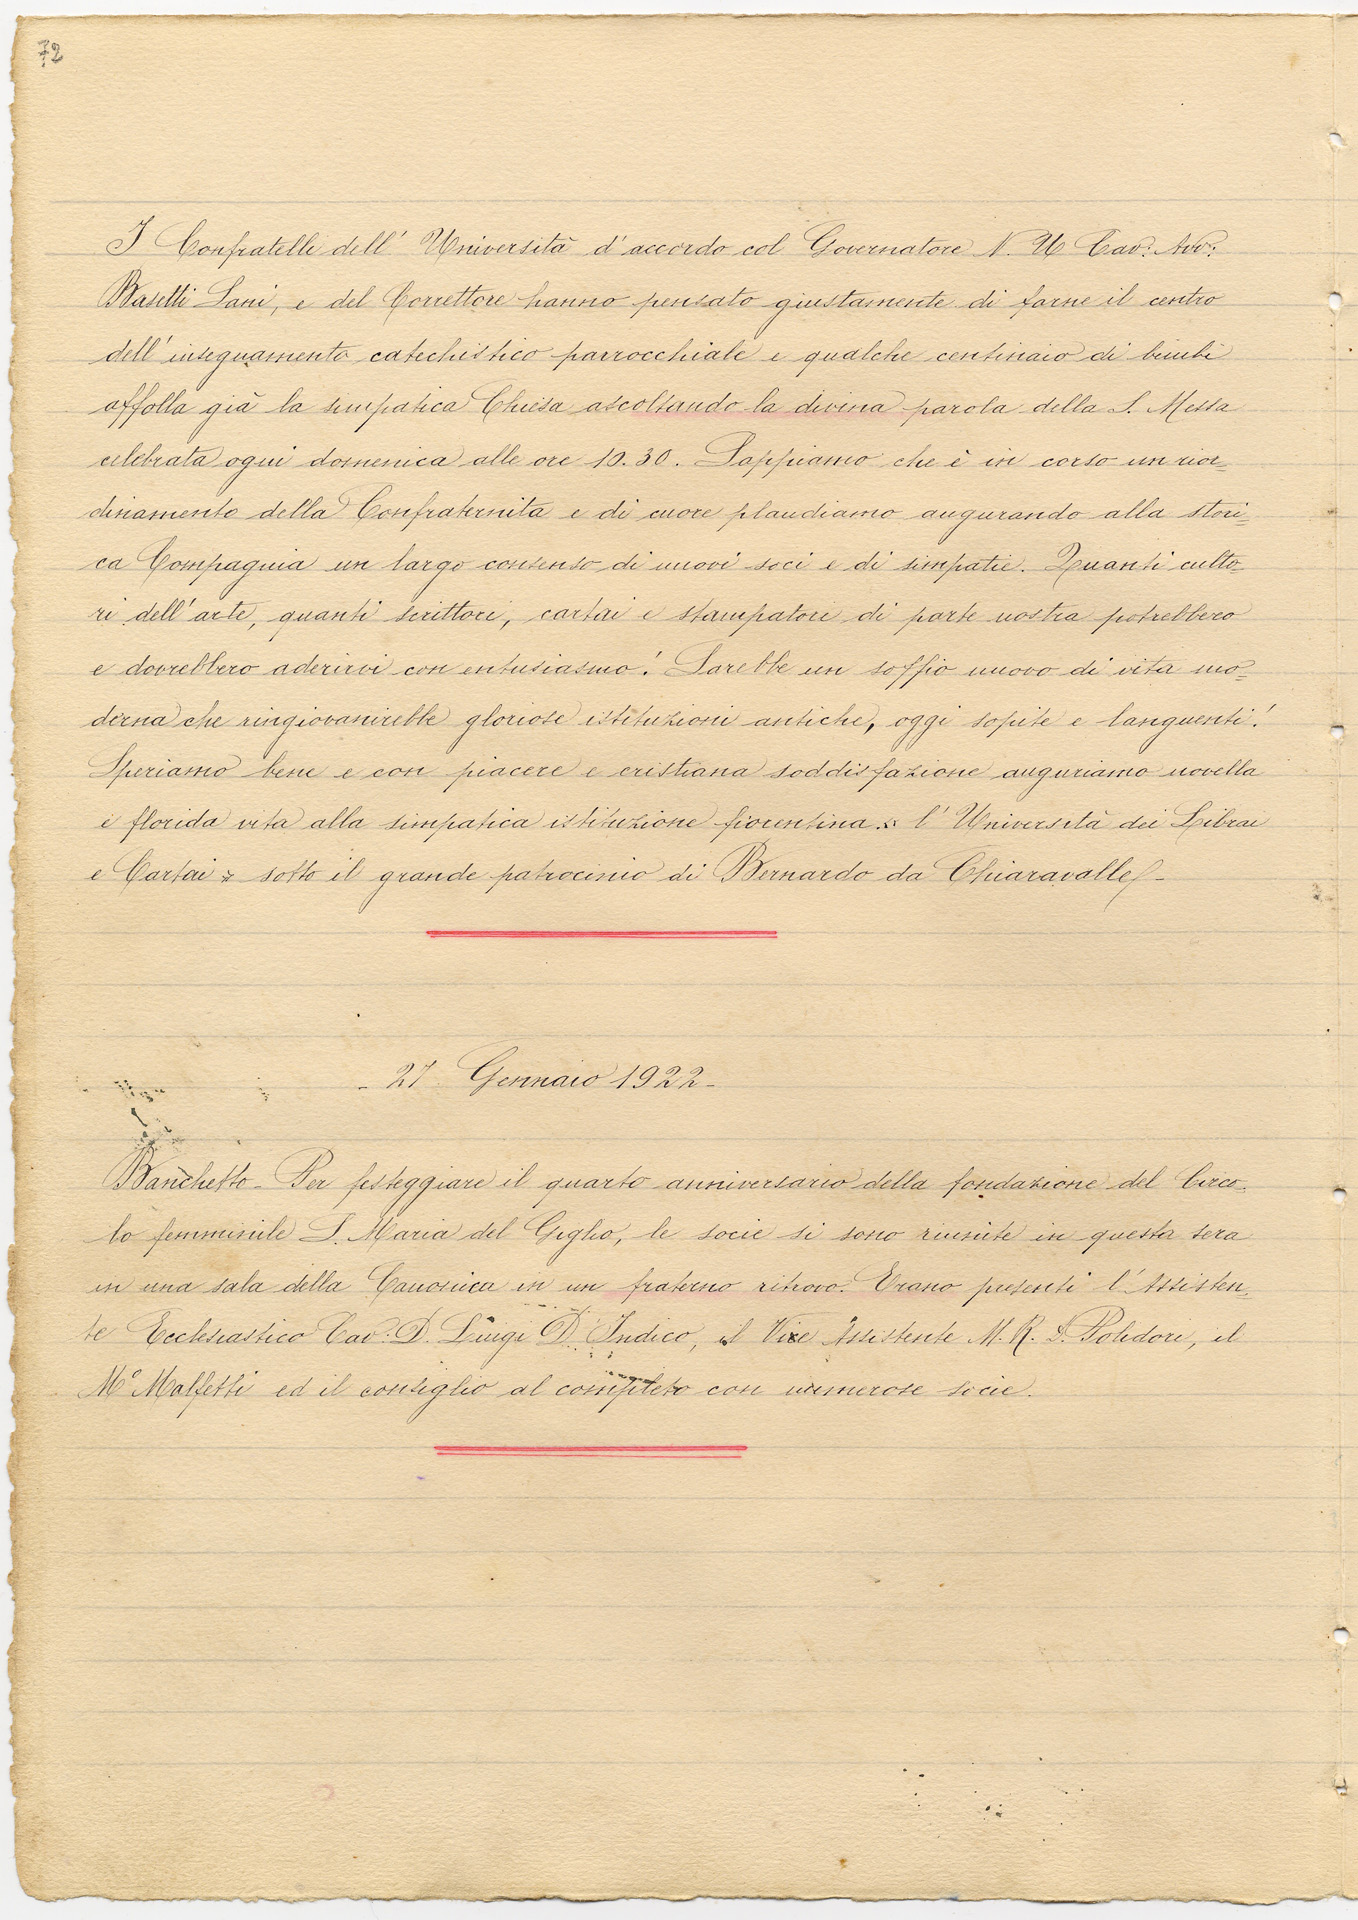 72
I Confratelli dell' Università d'accordo col Governatore N. U Cav: Avv:
Basetti Sani, e del Correttore hanno pensato giustamente di farne il centro
dell'insegnamento catechistico parrocchiale e qualche centinaio di bimbi
affolla già la simpatica Chiesa ascoltando la divina parola della S. Messa
celebrata ogni domenica alle ore 10.30. Sappiamo che è in corso un rior=
dinamento della Confraternita e di cuore plaudiamo augurando alla stori=
ca Compagnia un largo consenso di nuovi soci e di simpatie. Quanti culto=
ri dell'arte, quanti scrittori, cartai e stampatori di parte nostra potrebbero
e dovrebbero aderirvi con entusiasmo! Sarebbe un soffio nuovo di vita mo=
derna che ringiovanirebbe gloriose istituzioni antiche, oggi sopite e languenti!
Speriamo bene e con piacere e cristiana soddisfazione auguriamo novella
e florida vita alla simpatica istituzione fiorentina « l'Università dei Librai
e Cartai » sotto il grande patrocinio di Bernardo da Chiaravalle -
- 27 Gennaio 1922 -
Banchetto - Per festeggiare il quarto anniversario della fondazione del Circo=
lo femminile S. Maria del Giglio, le socie si sono riunite in questa sera
in una sala della Canonica in un fraterno ritrovo. Erano presenti l'Assisten=
te Ecclesiastico Cav: D. Luigi D'Indico, il Vice Assistente M. R. D. Polidori, il
M° Malfetti ed il consiglio al completo con numerose socie.